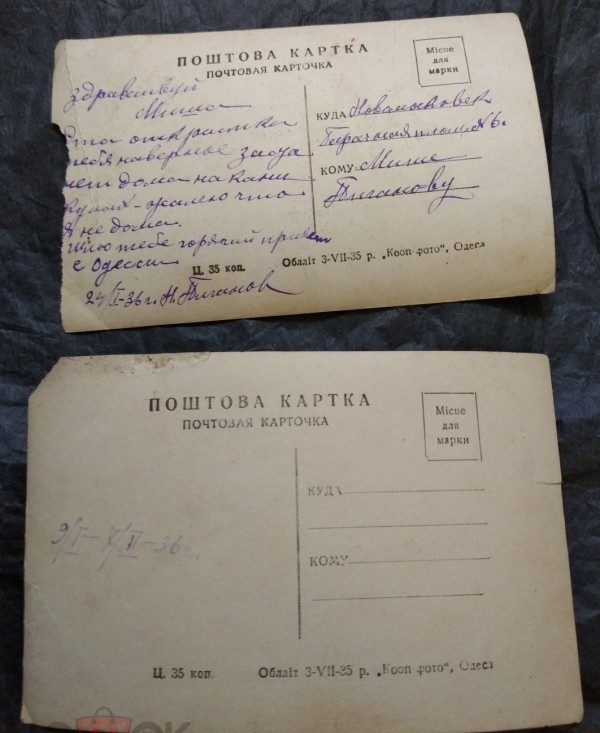 ПОШТОВА КАРТКА
ПОЧТОВАЯ КАРТОЧКА
Місце
для
марки
Здравствуй
Миша
Эта открытка
тебя наверное заста
нет дома на кани
кулах - жалею что
я не дома.
Шлю тебе горячий привет
с Одессы
24/I-36 г. Н. Пиганов
КУДА Новомосковск
площадь 6.
КОМУ Мише
Пиганову
Ц. 35 коп. Обліт 3-VII-35 р. „Кооп-фото", Одеса
ПОШТОВА КАРТКА
ПОЧТОВАЯ КАРТОЧКА
Місце
для
марки
9/I - 7/II - 36 г.
КУДА
КОМУ
Ц. 35 коп. Обліт 3-VII-35 р. „Кооп-фото", Одеса